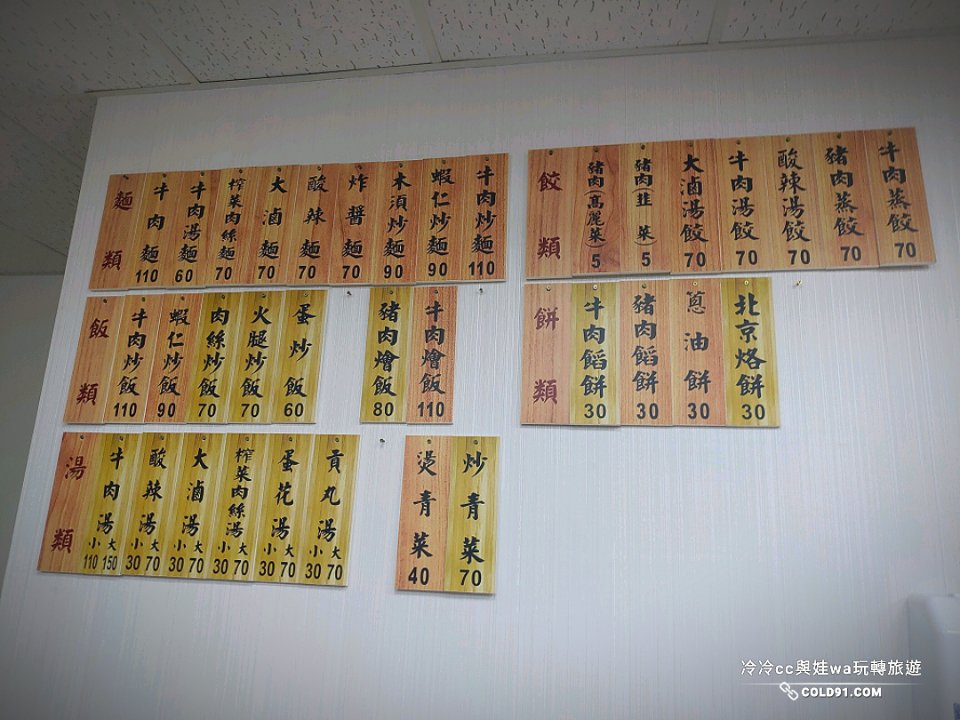 麵類
牛肉麵 110
牛肉湯麵 60
榨菜肉絲麵 70
大滷麵 70
酸辣麵 70
炸醬麵 70
木須炒麵 90
蝦仁炒麵 90
牛肉炒麵 110
餃類
豬肉(高麗菜) 5
豬肉(韭菜) 5
大滷湯餃 70
牛肉湯餃 70
酸辣湯餃 70
豬肉蒸餃 70
牛肉蒸餃 70
飯類
牛肉炒飯 110
蝦仁炒飯 90
肉絲炒飯 70
火腿炒飯 70
蛋炒飯 60
豬肉燴飯 80
牛肉燴飯 110
餅類
牛肉餡餅 30
豬肉餡餅 30
蔥油餅 30
北京烙餅 30
湯類
牛肉湯 小110 大150
酸辣湯 小30 大70
大滷湯 小30 大70
榨菜肉絲湯 小30 大70
蛋花湯 小30 大70
貢丸湯 小30 大70
燙青菜 40
炒青菜 70
冷冷cc與娃wa玩轉旅遊
COLD91.COM